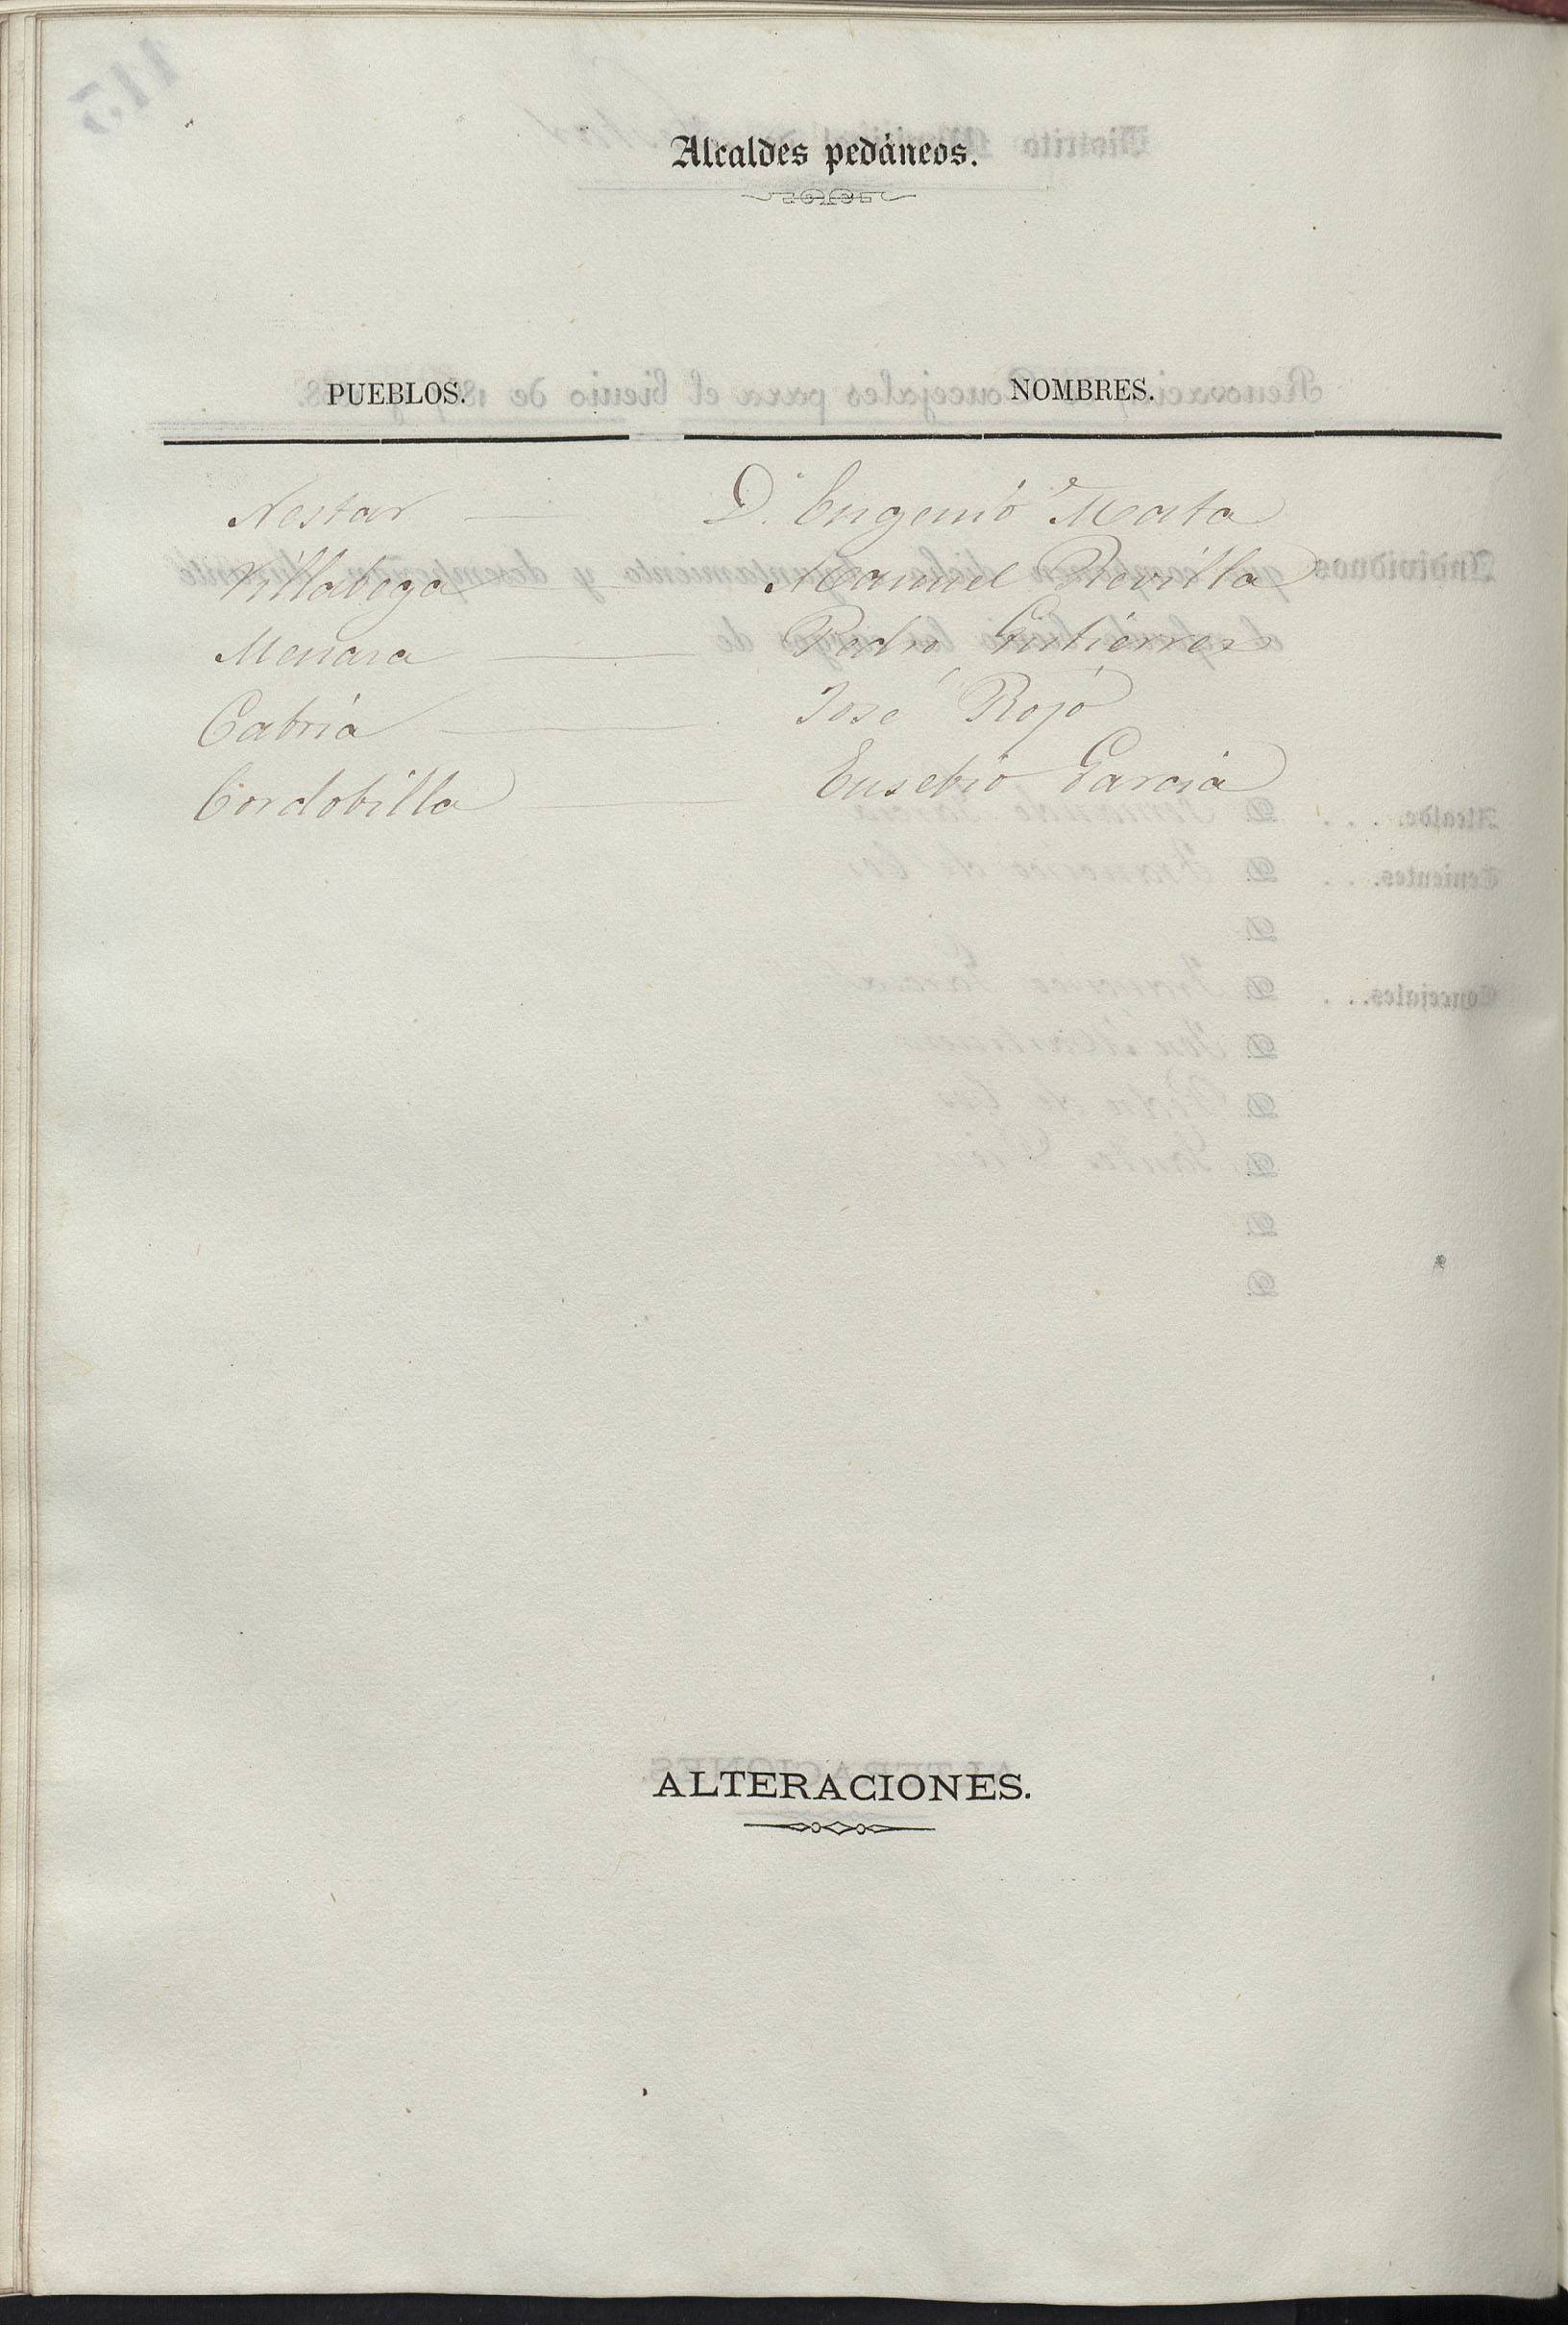 Alcaldes pedáneos.
PUEBLOS. NOMBRES.
Nestar — D. Eugenio Mata
Villabega — Manuel Revilla
Menara — Pedro Gutierrez
Cabria — José Rojo
Cordobilla — Eusebio Garcia
ALTERACIONES.